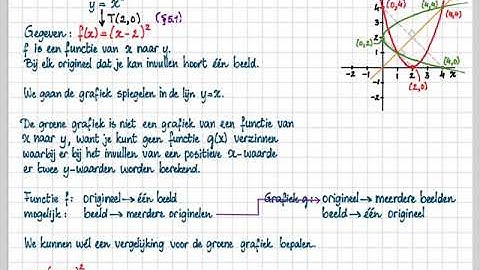 y = x²
↓ T(2,0) (§5.1)
Gegeven: f(x) = (x-2)²
f is een functie van x naar y.
Bij elk origineel dat je kan invullen hoort één beeld.
We gaan de grafiek spiegelen in de lijn y=x.
De groene grafiek is niet een grafiek van een functie van
x naar y, want je kunt geen functie g(x) verzinnen
waarbij er bij het invullen van een positieve x-waarde
er twee y-waarden worden berekend.
Functie f: origineel → één beeld Grafiek g: origineel → meerdere beelden
mogelijk: beeld → meerdere originelen beeld → één origineel
We kunnen wél een vergelijking voor de groene grafiek bepalen.
(0,4) (4,4) (4,4)
(0,2)
(4,0)
-2 -1 1 2 3 4 x
(2,0)
-1
-2